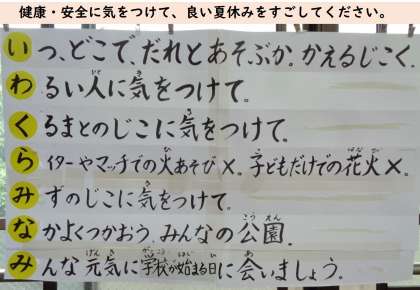 健康・安全に気をつけて、良い夏休みをすごしてください。
いつ、どこで、だれとあそぶか。かえるじこく.
わるい人に気をつけて。
くるまとのじこに気をつけて。
らイターやマッチでの火あそび×。子どもだけでの花火×。
みずのじこに気をつけて.
なかよくつかおう.みんなの公園.
みんな元気に学校が始まる日に会いましょう.